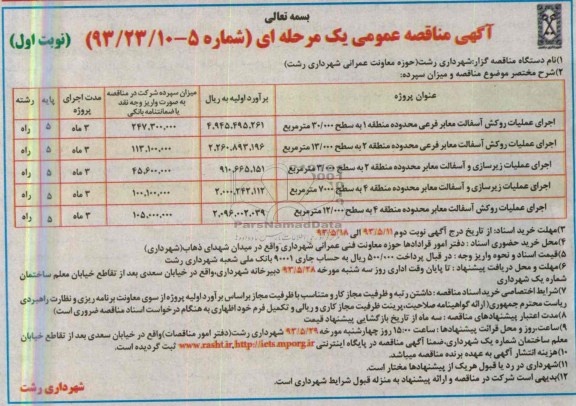 بسمه تعالی
آگهی مناقصه عمومی یک مرحله ای (شماره ۵-۹۳/۲۳/۱۰) (نوبت اول)
۱)نام دستگاه مناقصه گزار:شهرداری رشت(حوزه معاونت عمرانی شهرداری رشت)
۲)شرح مختصر موضوع مناقصه و میزان سپرده:
عنوان پروژه | برآورد اولیه به ریال | میزان سپرده شرکت در مناقصه به صورت واریز وجه نقد یا ضمانتنامه بانکی | مدت اجرای پروژه | پایه | رشته
اجرای عملیات روکش آسفالت معابر فرعی محدوده منطقه ۱ به سطح ۳۰/۰۰۰ مترمربع | ۴.۹۴۵.۴۹۵.۲۶۱ | ۲۴۷.۳۰۰.۰۰۰ | ۳ ماه | ۵ | راه
اجرای عملیات روکش آسفالت معابر فرعی محدوده منطقه ۲ به سطح ۱۳/۰۰۰ مترمربع | ۲.۲۶۰.۸۹۳.۱۹۶ | ۱۱۳.۱۰۰.۰۰۰ | ۳ ماه | ۵ | راه
اجرای عملیات زیرسازی و آسفالت معابر محدوده منطقه ۲ به سطح مترمربع | ۹۱۰.۶۶۵.۱۵۱ | ۴۵.۶۰۰.۰۰۰ | ۳ ماه | ۵ | راه
اجرای عملیات زیرسازی و آسفالت معابر محدوده منطقه ۴ به سطح ۷۰۰۰ مترمربع | ۲.۰۰۰.۲۴۳.۱۱۲ | ۱۰۰.۱۰۰.۰۰۰ | ۳ ماه | ۵ | راه
اجرای عملیات روکش آسفالت معابر محدوده منطقه ۴ به سطح ۱۲/۰۰۰ مترمربع | ۲.۰۹۶.۰۰۲.۰۳۹ | ۱۰۵.۰۰۰.۰۰۰ | ۳ ماه | ۵ | راه
ParsNamadData
۳)مهلت خرید اسناد: از تاریخ درج آگهی نوبت دوم ۹۳/۵/۱۱ الی ۹۳/۵/۱۸
۴)محل خرید حضوری اسناد : دفتر امور قراردادها حوزه معاونت فنی عمرانی شهرداری واقع در میدان شهدای ذهاب(شهرداری)
۵)قیمت اسناد و نحوه واریز وجه : در قبال پرداخت ۵۰۰/۰۰۰ ریال به حساب جاری ۹۰۰۰۱ بانک ملی شعبه شهرداری رشت
۶)مهلت و محل دریافت پیشنهاد : تا پایان وقت اداری روز سه شنبه مورخه ۹۳/۵/۲۸ دبیرخانه شهرداری،واقع در خیابان سعدی بعد از تقاطع خیابان معلم ساختمان شماره یک شهرداری
۷)شرایط اختصاصی خرید اسناد مناقصه: داشتن رتبه و ظرفیت مجاز کار و متناسب با ظرفیت مجاز براساس برآورد اولیه پروژه از سوی معاونت برنامه ریزی و نظارت راهبردی ریاست محترم جمهوری(ارائه گواهینامه صلاحیت،پرینت ظرفیت مجاز کاری و ریالی و تکمیل فرم خود اظهاری به هنگام درخواست اسناد مناقصه ضروری است)
۸)مدت اعتبار پیشنهادهای مناقصه : سه ماه از تاریخ بازگشایی پیشنهاد قیمت
۹)ساعت،روز و محل قرائت پیشنهادها : ساعت ۱۵:۰۰ روز چهارشنبه مورخه ۹۳/۵/۲۹ شهرداری رشت(دفتر امور مناقصات)واقع در خیابان سعدی بعد از تقاطع خیابان معلم ساختمان شماره یک شهرداری،ضمنا آگهی مناقصه در پایگاه اینترنتی www.rasht.ir,http://iets.mporg.ir ثبت گردیده است.
۱۰)هزینه انتشار آگهی به عهده برنده مناقصه میباشد.
۱۱)شهرداری در رد یا قبول هریک از پیشنهادها مختار است.
۱۲)بدیهی است شرکت در مناقصه و ارائه پیشنهاد به منزله قبول شرایط شهرداری است.
شهرداری رشت